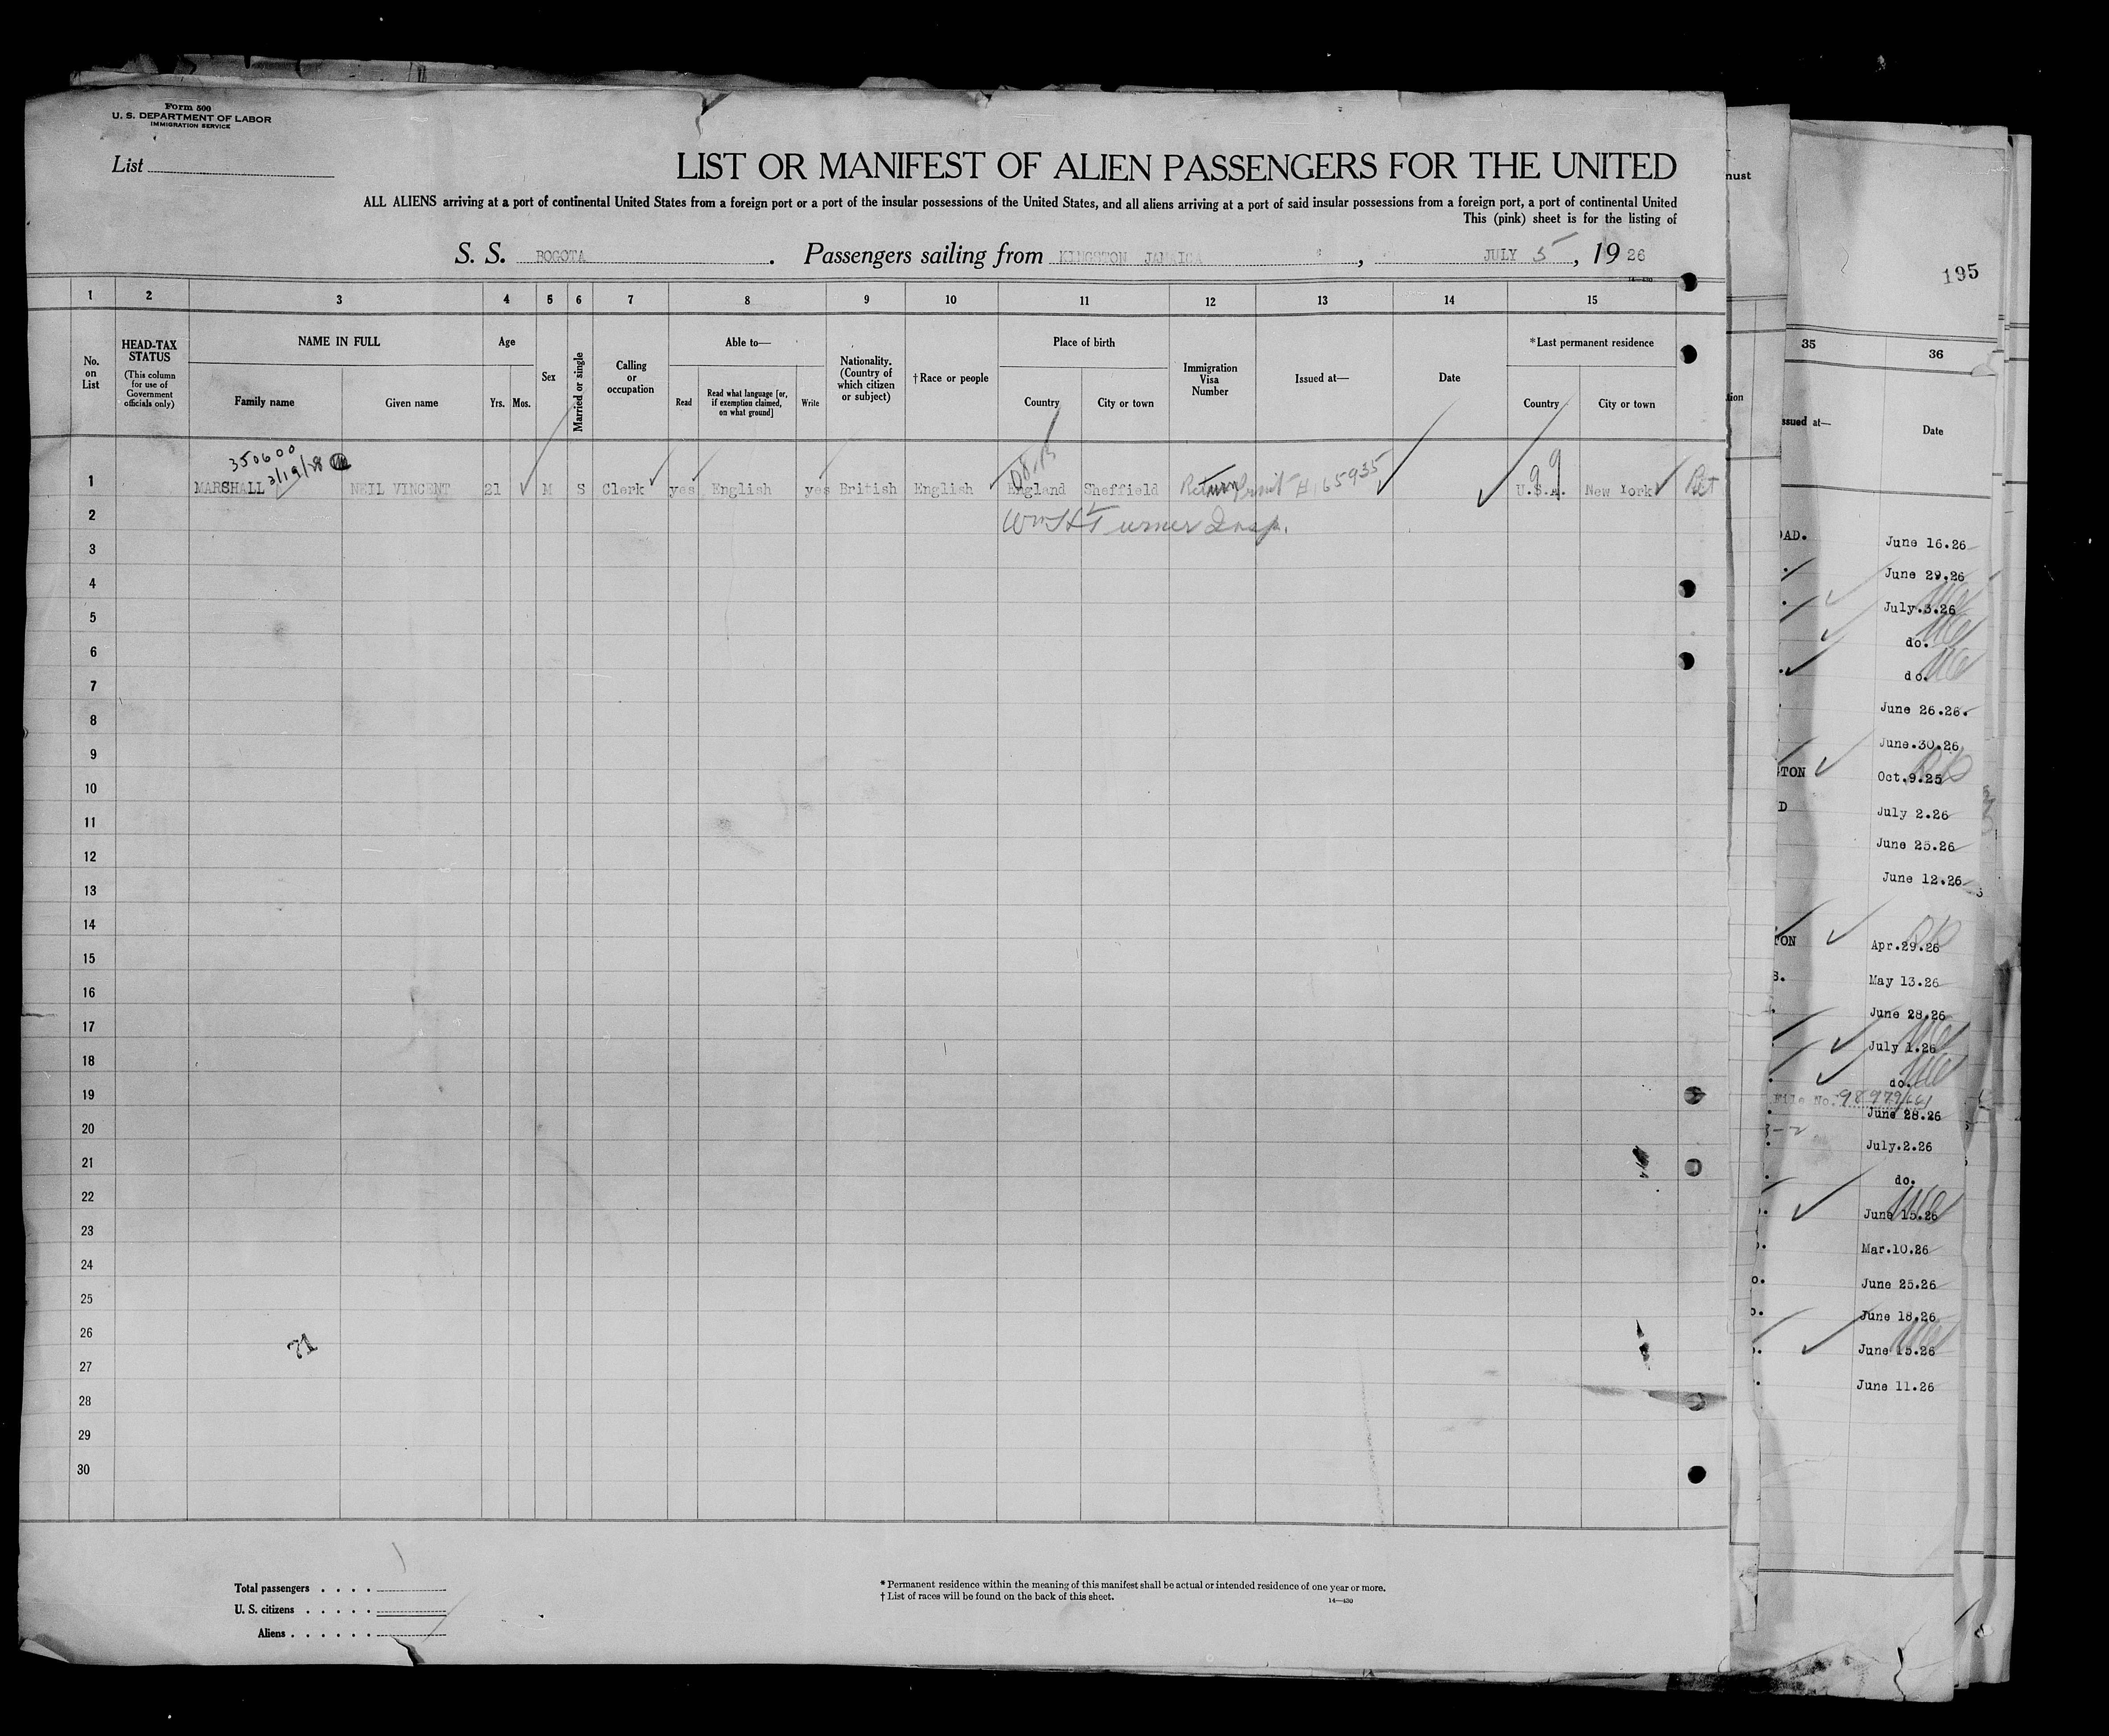 Form 500
U. S. DEPARTMENT OF LABOR
IMMIGRATION SERVICE
List
LIST OR MANIFEST OF ALIEN PASSENGERS FOR THE UNITED
ALL ALIENS arriving at a port of continental United States from a foreign port or a port of the insular possessions of the United States, and all aliens arriving at a port of said insular possessions from a foreign port, a port of continental United
This (pink) sheet is for the listing of
S. S. BOGOTA. Passengers sailing from KINGSTON JAMAICA, JULY 5, 1926
14—430
1 2 3 4 5 6 7 8 9 10 11 12 13 14 15
No. on List
HEAD-TAX STATUS
(This column for use of Government officials only)
NAME IN FULL
Family name
Given name
Age
Yrs. Mos.
Sex
Married or single
Calling or occupation
Able to—
Read
Read what language [or, if exemption claimed, on what ground]
Write
Nationality. (Country of which citizen or subject)
†Race or people
Place of birth
Country
City or town
Immigration Visa Number
Issued at—
Date
*Last permanent residence
Country
City or town
350600
3/19/28
99
1 MARSHALL NEIL VINCENT 21 M S Clerk yes English yes British English England Sheffield Return Permit # 165935 U.S.A. New York
2 Turner Insp.
3
4
5
6
7
8
9
10
11
12
13
14
15
16
17
18
19
20
21
22
23
24
25
26
27
28
29
30
71
Total passengers . . . .
U. S. citizens . . . . .
Aliens . . . . . .
* Permanent residence within the meaning of this manifest shall be actual or intended residence of one year or more.
† List of races will be found on the back of this sheet.
14—430
must
195
35 36
Issued at—
Date
AD. June 16.26
June 29.26
July.3.26
do.
do.
June 26.26.
June.30.26
TON Oct.9.25
D July 2.26
June 25.26
June 12.26
TON Apr.29.26
S. May 13.26
June 28.26
July 1.26
do.
File No.
June 28.26
July.2.26
do.
June 15.26
Mar.10.26
o. June 25.26
June 18.26
June 15.26
June 11.26